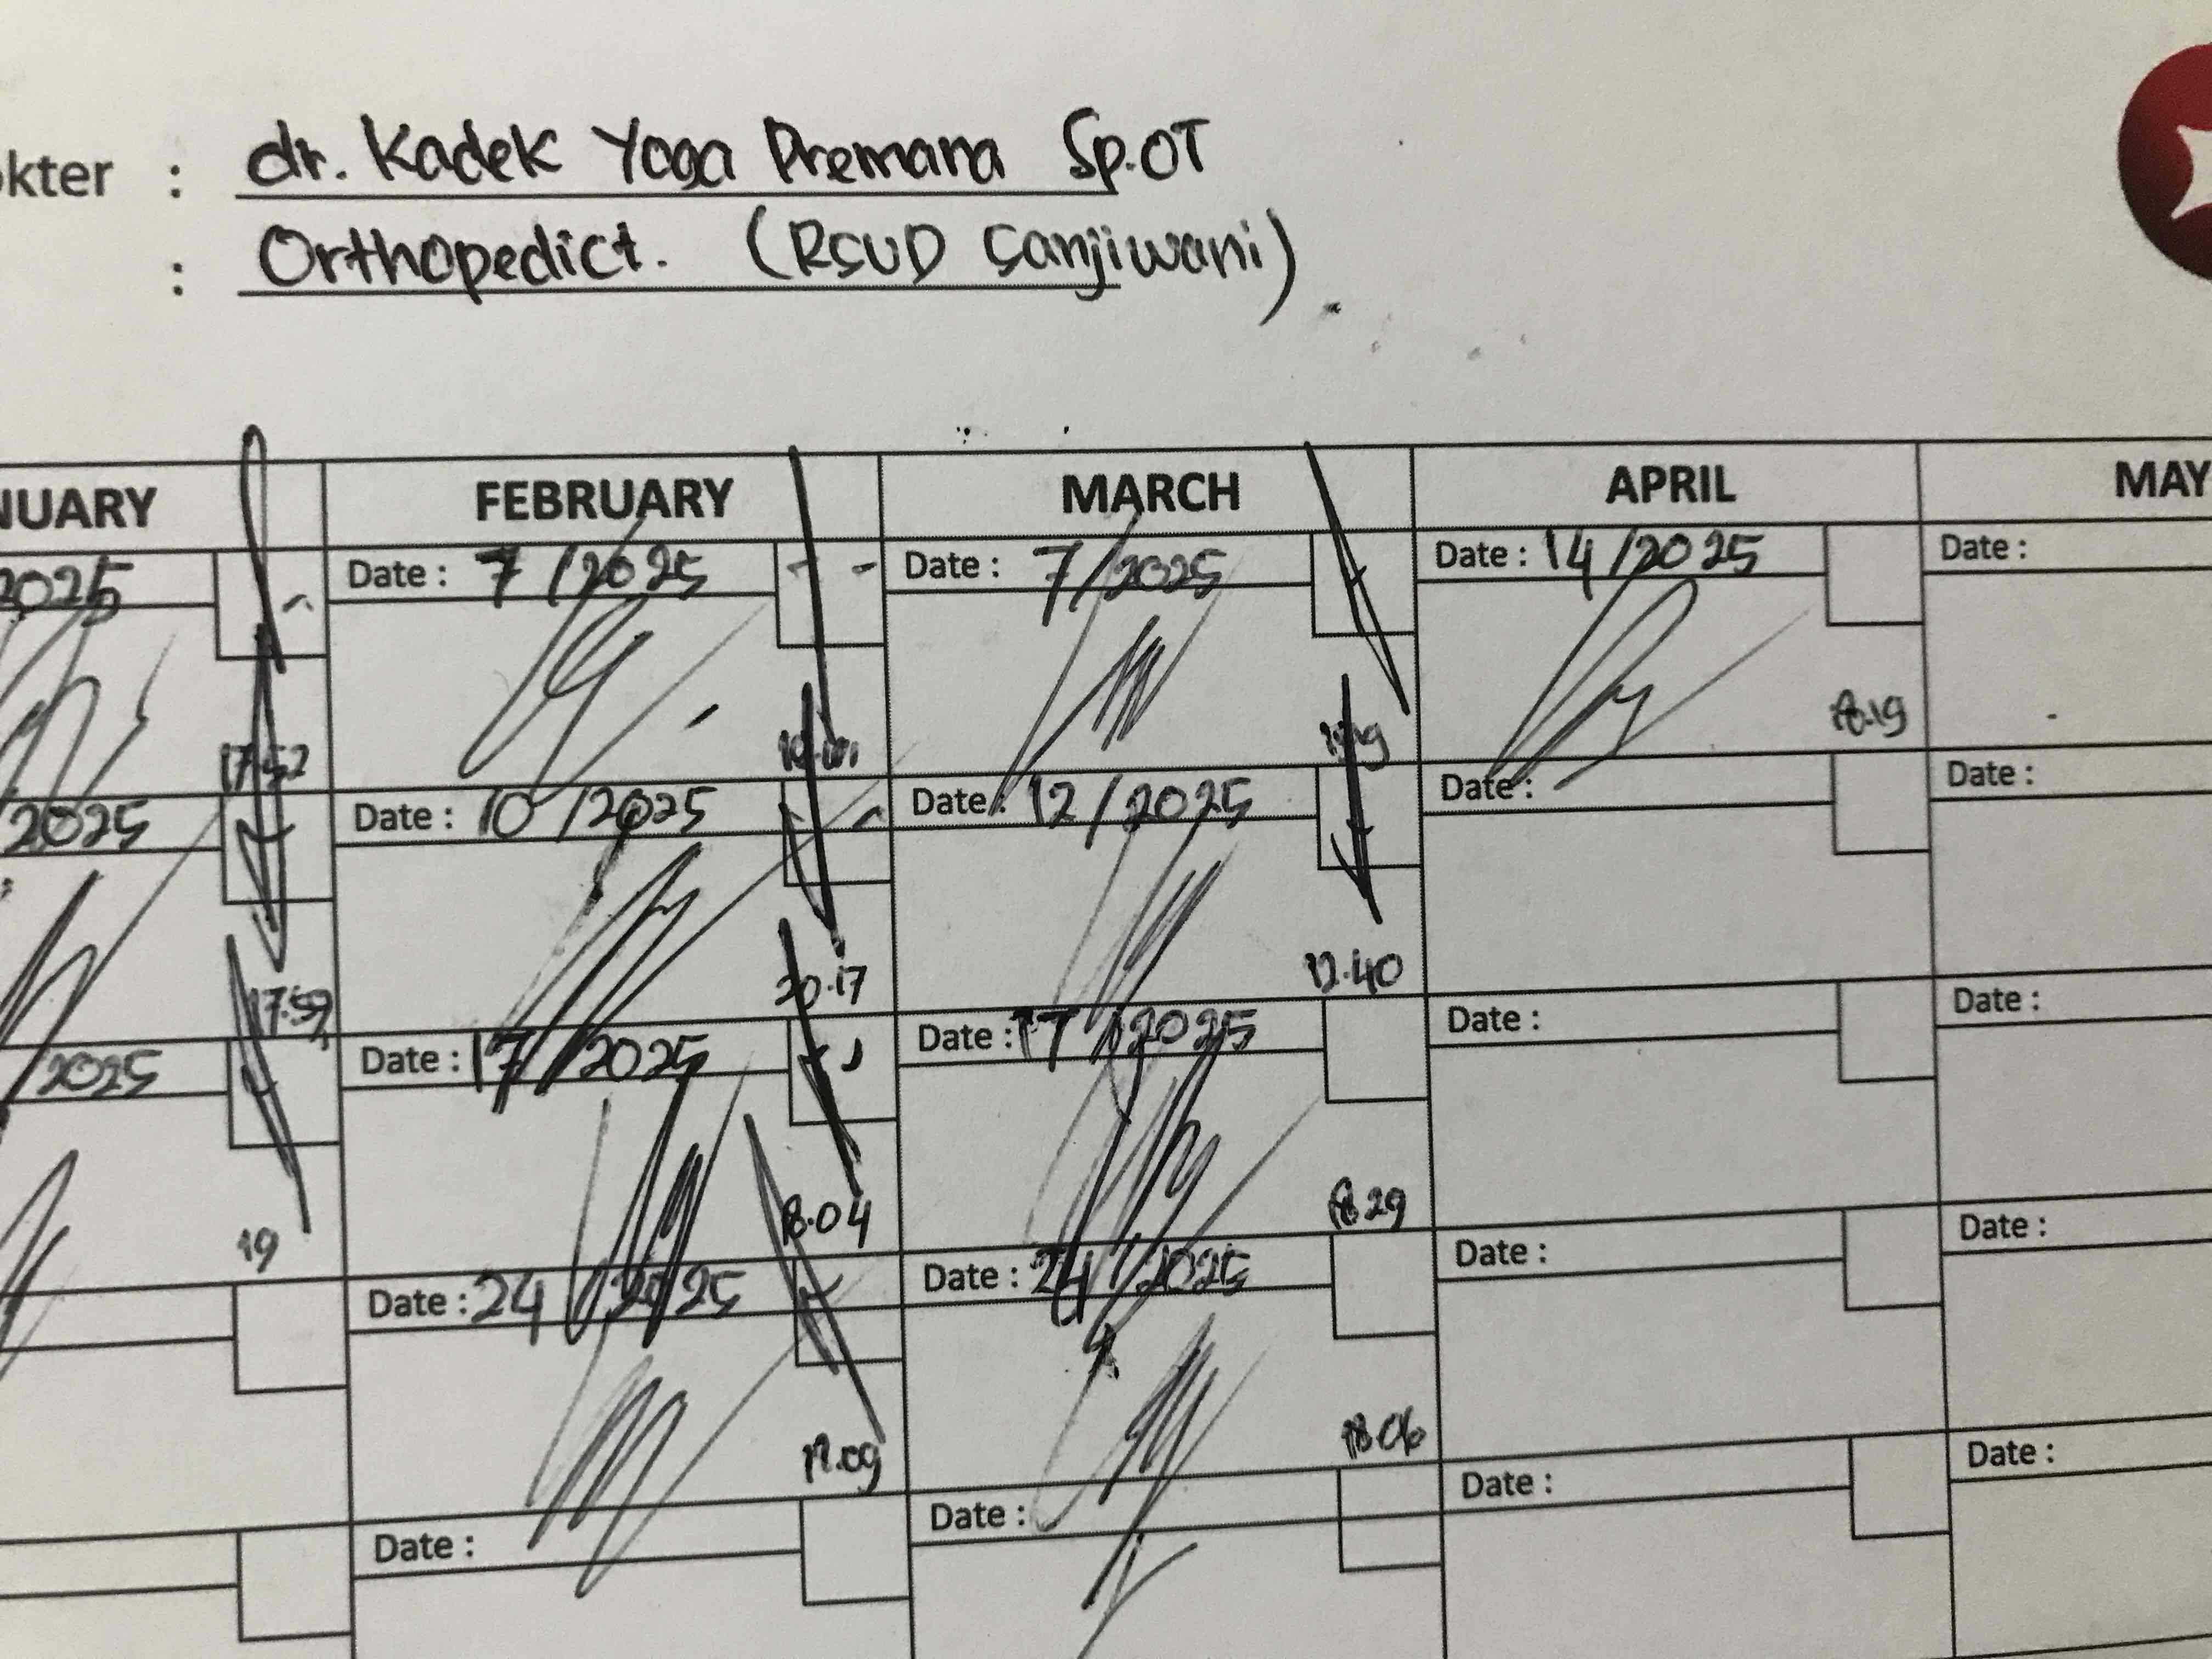 kter : dr. Kadek Yoga Premana Sp.OT
: Orthopedict. (RSUD Sanjiwani).
NUARY FEBRUARY MARCH APRIL MAY
2025 Date : 7 /2025 Date : 7/2025 Date : 14/2025 Date :
17.52 18.19
2025 Date : 10 /2025 Date : 12/2025 Date : Date :
17.59 20.17 12.40
2025 Date : 17 /2025 Date : 17 /2025 Date : Date :
19 18.04 18.29
Date : 24 /2025 Date : 24 /2025 Date : Date :
17.09 18.06
Date : Date : Date : Date :